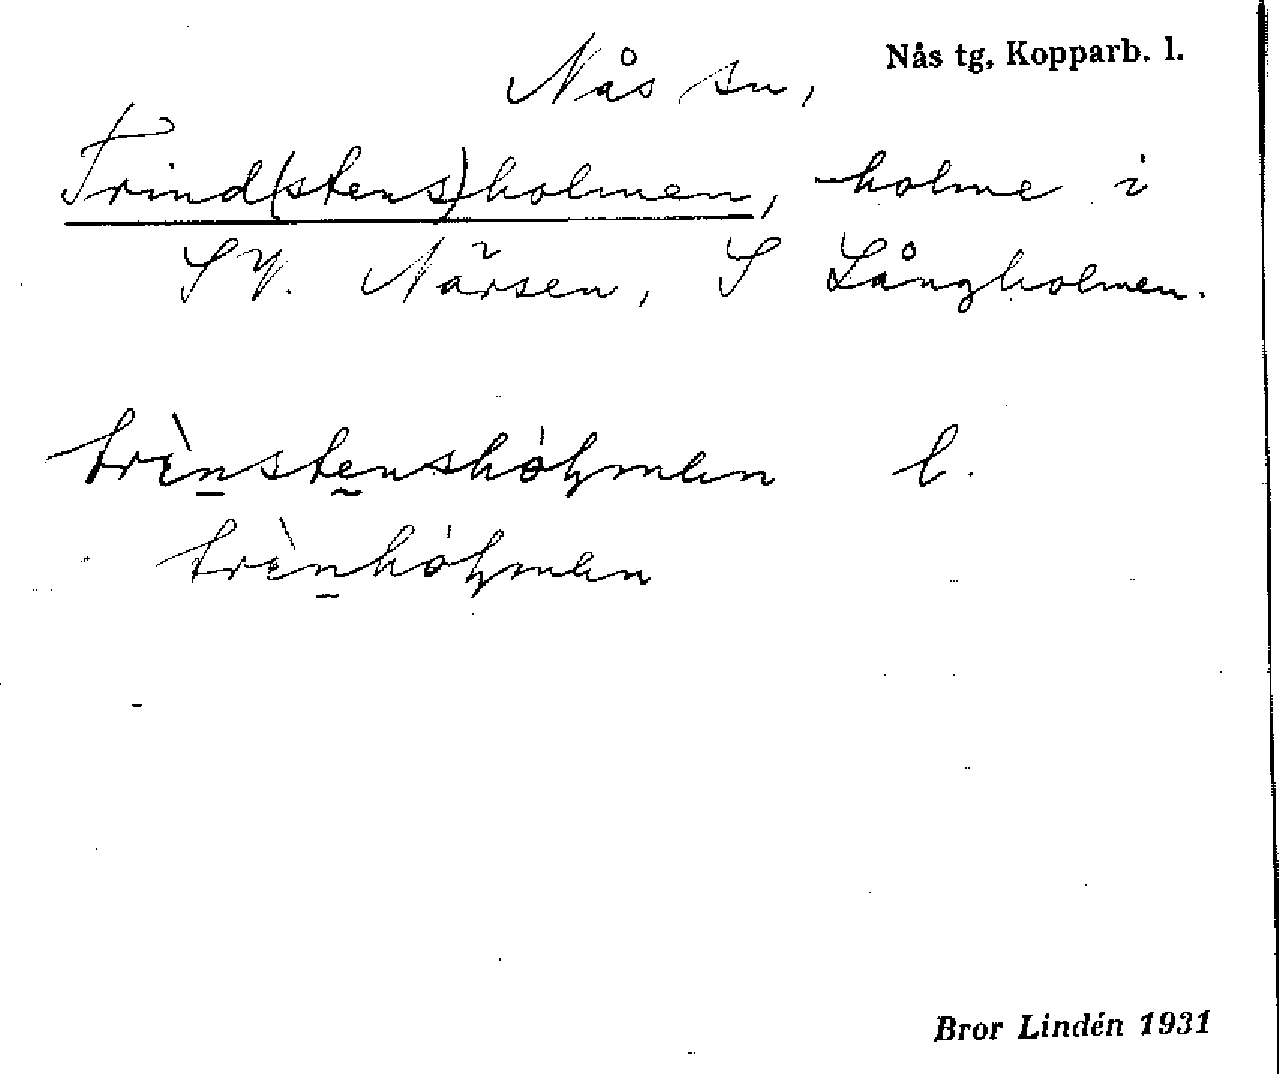 Nås tg, Kopparb. l.
Nås sn,
Trind(stens)holmen, holme i
SV. Närsen, S Långholmen.
trìnstenshóɫmən l.
trìnhóɫmən
Bror Lindén 1931